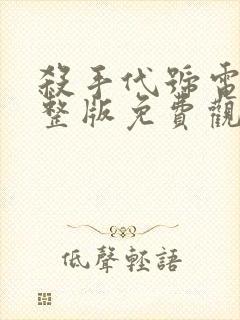 殺手代號電
整版免費觀
低聲輕語